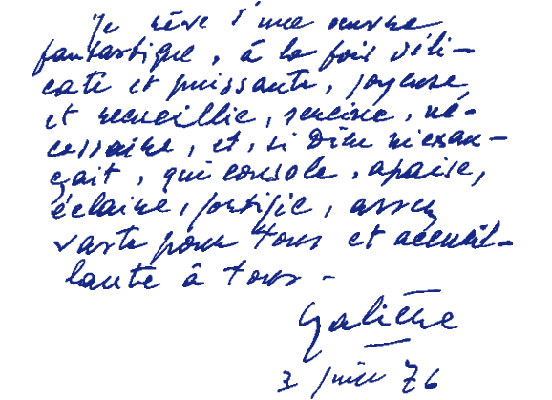 Je rêve d'une oeuvre
fantastique, à la fois déli-
cate et puissante, joyeuse
et recueillie, sereine, né-
cessaire, et, si Dieu m'exau-
çait, qui console, apaise,
éclaire, fortifie, assez
vaste pour tous et accueil-
lante à tous -
3 juin 76